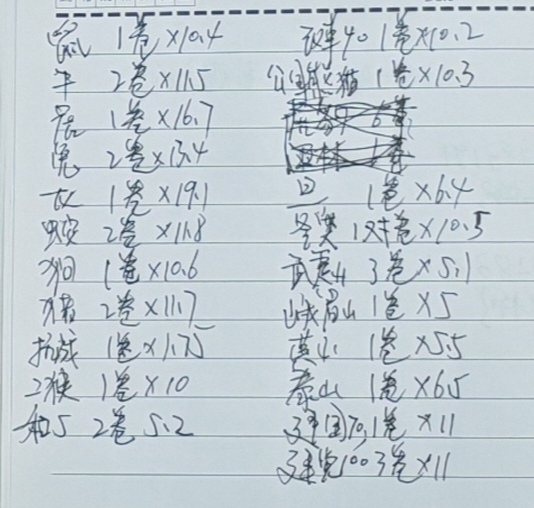 鼠 1卷×10.4
牛 2卷×11.5
虎 1卷×16.7
兔 2卷×13.4
龙 1卷×19.1
蛇 2卷×11.8
狗 1卷×10.6
猪 2卷×11.7
抗战 1卷×1.75
二猴 1卷×10
和5 2卷 5.2
改革40 1卷×10.2
公园熊猫 1卷×10.3
1卷×6.4
冬奥 1对卷×10.5
武夷山 3卷×5.1
峨眉山 1卷×5
黄山 1卷×5.5
泰山 1卷×6.5
建国70 1卷×11
建党100 3卷×11